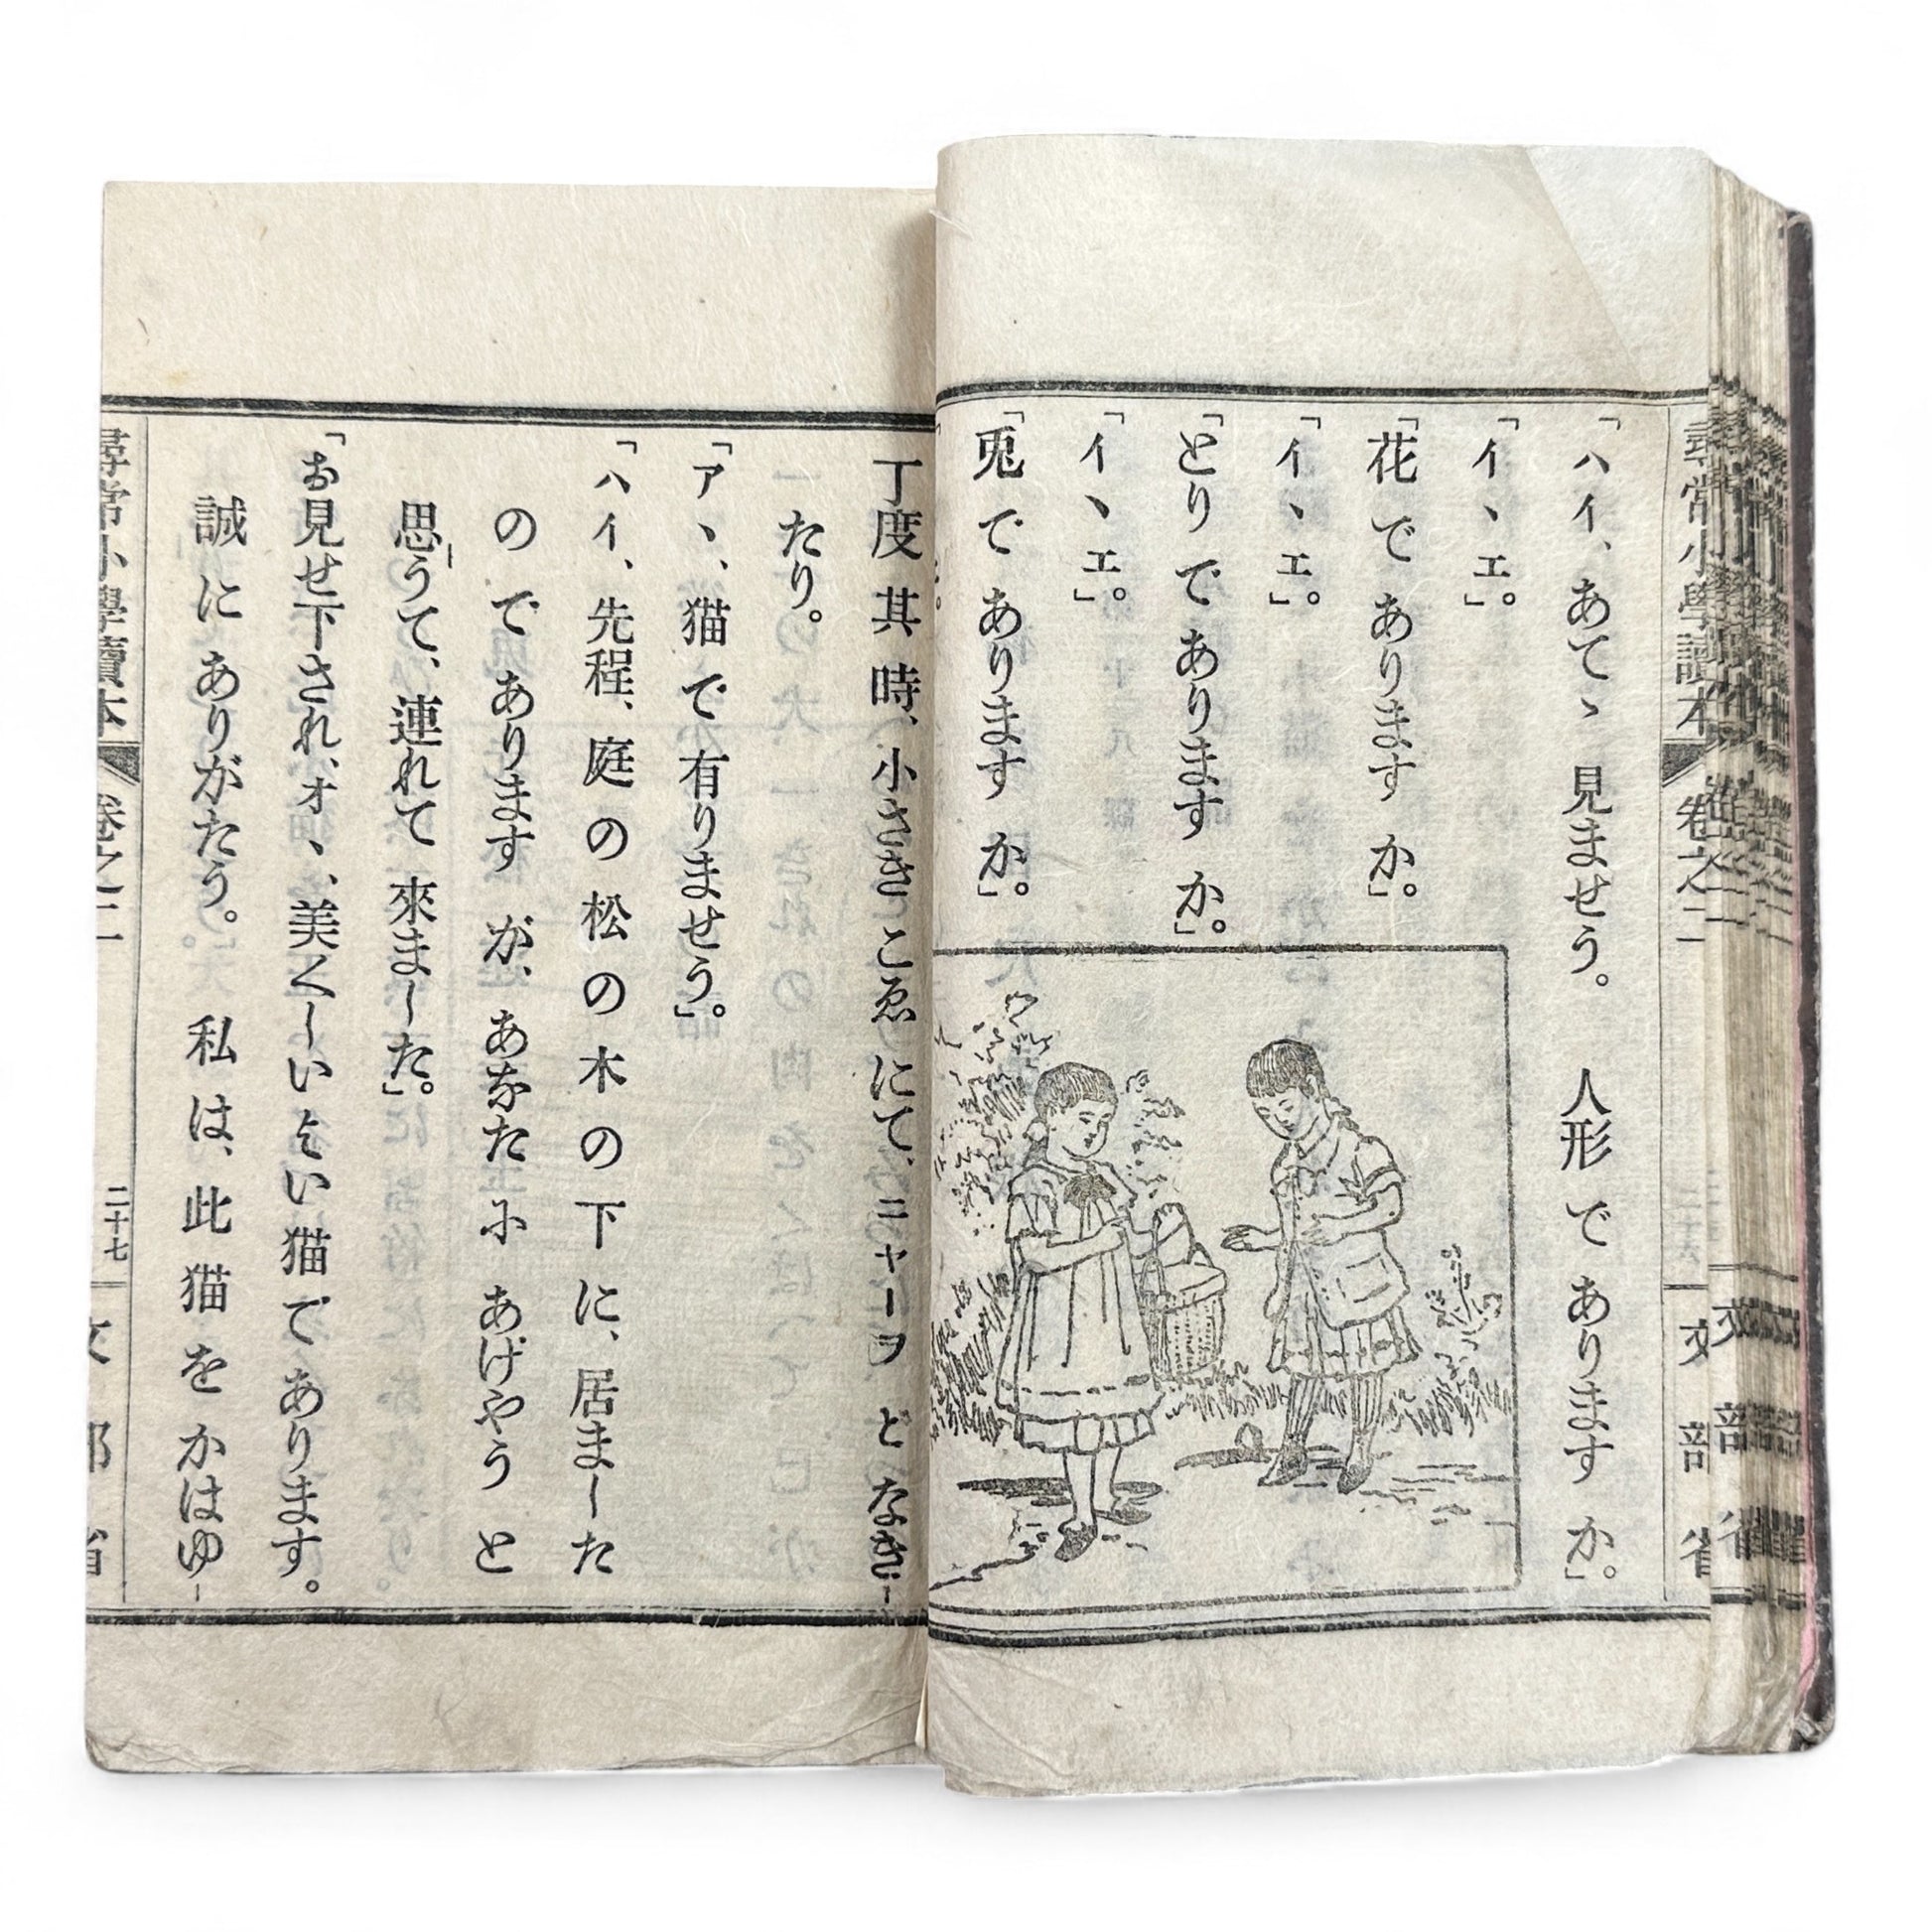 尋常小學讀本 卷之二 二十六 文部省
「ハイ、あてゝ 見ませう。 人形 で あります か」。
「イヽエ」。
「花 で あります か」。
「イヽエ」。
「とり で あります か」。
「イヽエ」。
「兎 で あります か」。
丁度 其 時、小さき こゑ にて、ニャーヲ と なき-
たり。
「アヽ、猫 で 有りませう」。
「ハイ、先程、庭 の 松 の 木 の 下 に、居ました
の で あります が、あなた に あげやう と
思うて、連れて 來ました」。
「お見せ下され、オヽ、美くしい よい 猫 で あります。
誠 に ありがたう。 私 は、此 猫 を かはゆ-
尋常小學讀本 卷之二 二十七 文部省